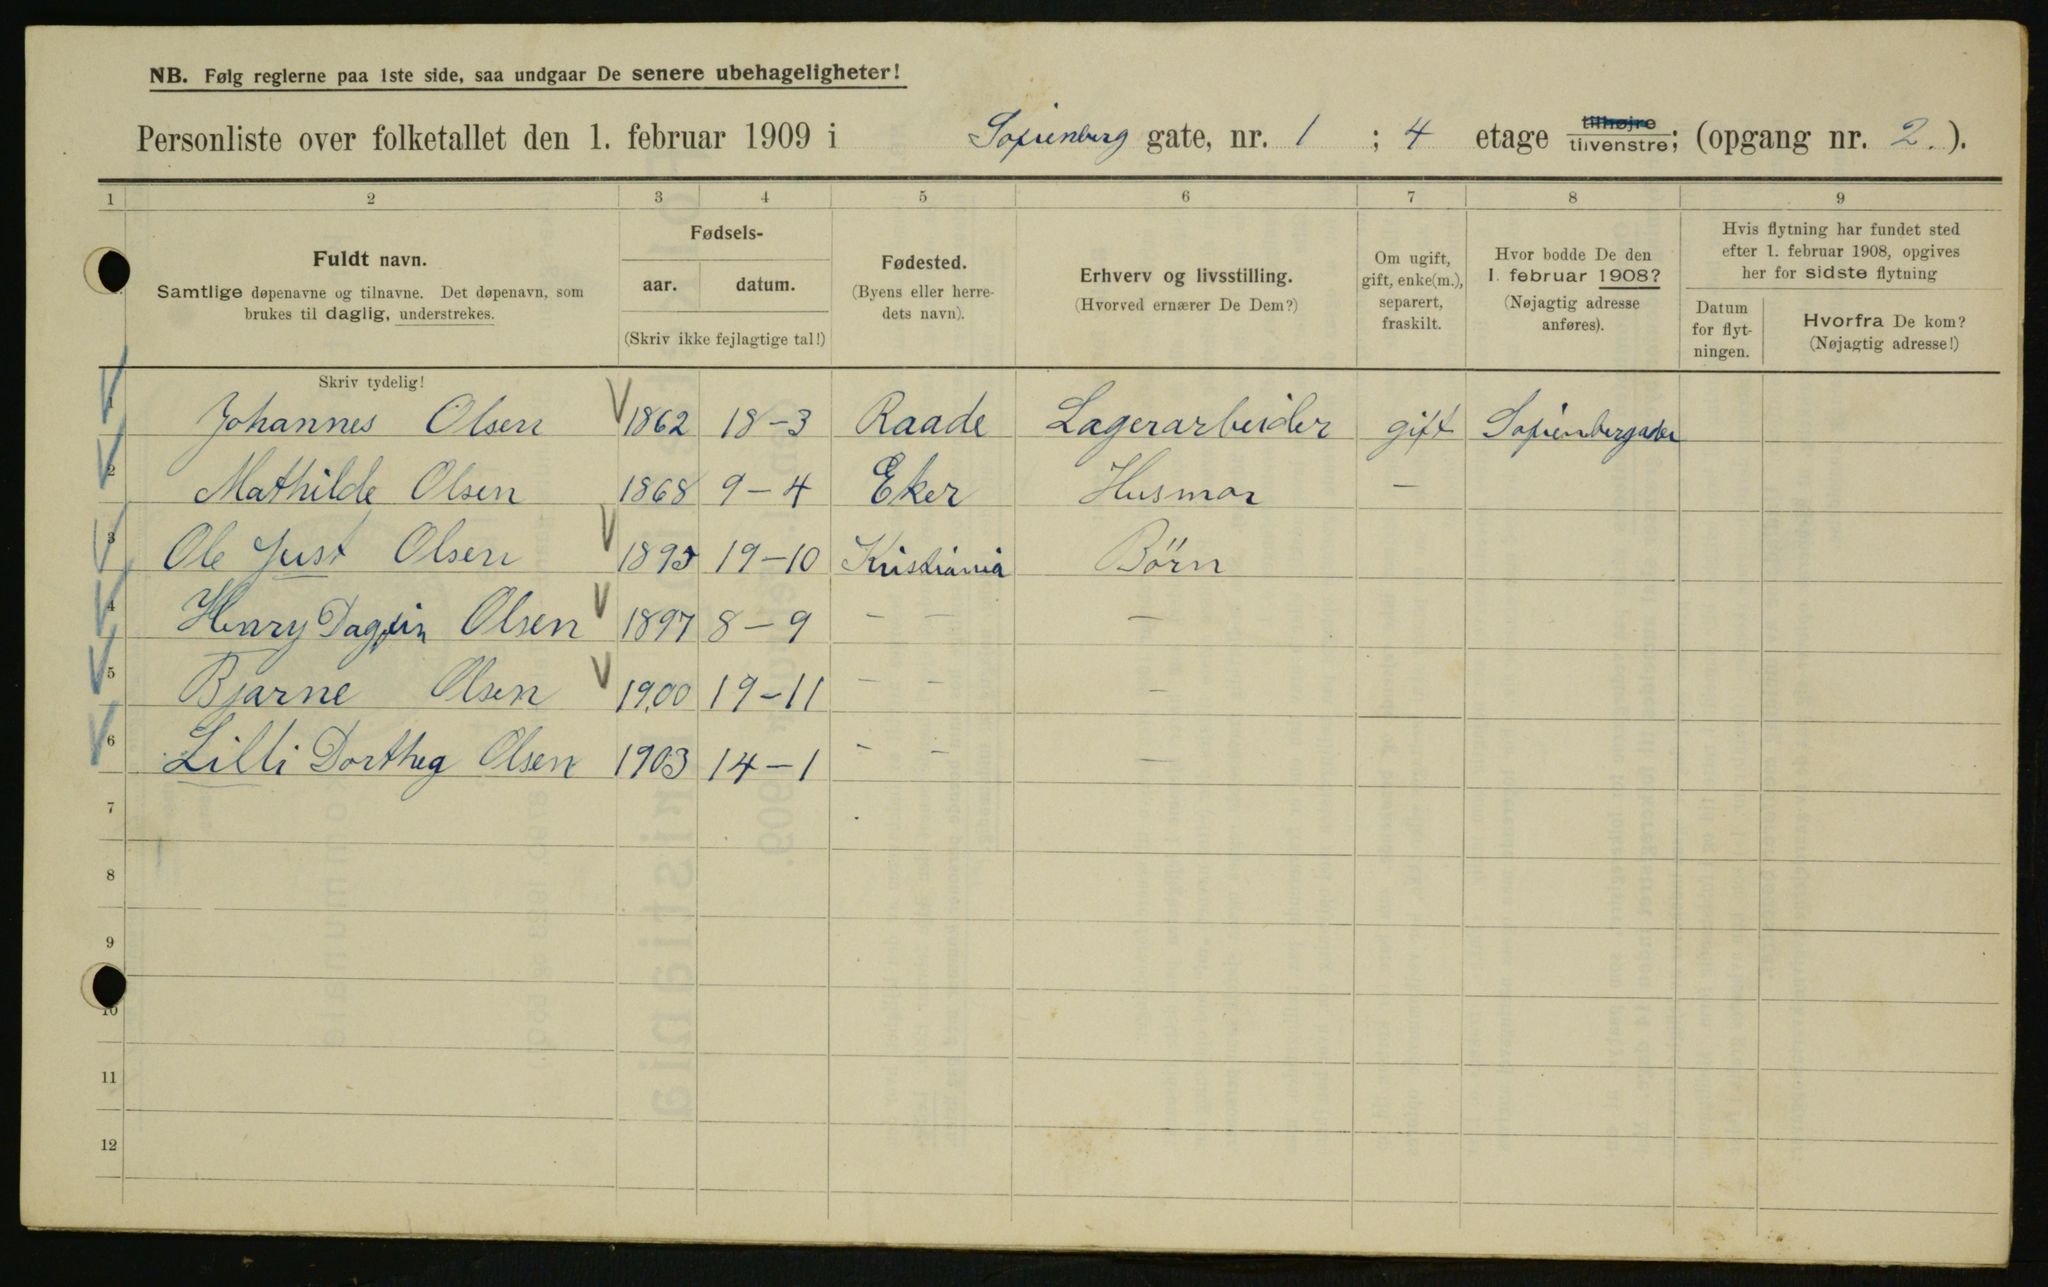 NB. Følg reglerne paa 1ste side, saa undgaar De senere ubehageligheter!
Personliste over folketallet den 1. februar 1909 i Sofienberg gate, nr. 1 ; 4 etage tilhøjre tilvenstre; (opgang nr. 2.).
1 2 3 4 5 6 7 8 9
Fuldt navn.
Samtlige døpenavne og tilnavne. Det døpenavn, som
brukes til daglig, understrekes.
Fødsels-
aar. datum.
(Skriv ikke fejlagtige tal!)
Fødested.
(Byens eller herre-
dets navn).
Erhverv og livsstilling.
(Hvorved ernærer De Dem?)
Om ugift,
gift, enke(m.),
separert,
fraskilt.
Hvor bodde De den
1. februar 1908?
(Nøjagtig adresse
anføres).
Hvis flytning har fundet sted
efter 1. februar 1908, opgives
her for sidste flytning
Datum
for flyt-
ningen.
Hvorfra De kom?
(Nøjagtig adresse!)
Skriv tydelig!
1 Johannes Olsen 1862 18-3 Raade Lagerarbeider gift
2 Mathilde Olsen 1868 9-4 Eker Husmor -
3 Ole Just Olsen 19-10 Kristiania Börn
4 Henry Dagfin Olsen 1897 8-9 - - -
5 Bjarne Olsen 1900 19-11 - - -
6 Lilli Dorthea Olsen 1903 14-1 - - -
7
8
9
10
11
12